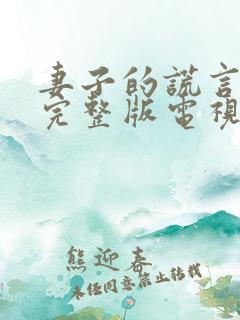 妻子的謊言
完整版電視
熊迎春
未经同意禁止转载